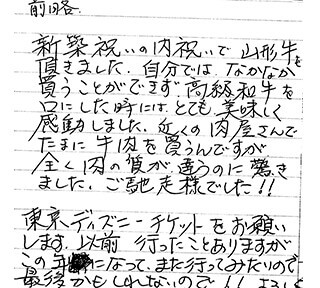 前略
新築祝いの内祝いで山形牛を
頂きました。自分では、なかなか
買うことができず高級和牛を
口にした時には、とても美味しく
感動しました。近くの肉屋さんで
たまに牛肉を買うんですが
全く肉の質が違うのに驚き
ました。ご馳走様でした!!
東京ディズニーチケットをお願い
します。以前行ったことありますが
この年になって、また行ってみたいので
最後かもしれないので